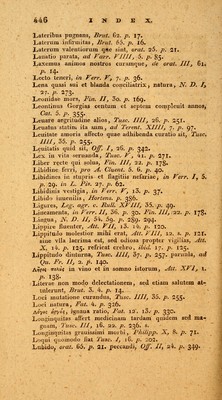 446 INDEX.
Lateribus pugnans, Brut. 62. p. 17.
Laterum infirmitas, Brut. 65. p. 16.
Laterum valentiorum quæ sint, orat. 25. p. 21.
Lautitio parata, ad Farr. VIIII, 5. p. 85.
Laxemus animos nostros cursumque, de orat. III, 61. p. 14.
Lecto teneri, in Verr. V, 7. p. 36.
Lena quasi sui et blanda conciliatrix, natura, N. D. I, 27. p. 275.
Leonidae mors, Fin. II, 30. p. 169.
Leontinus Gorgias centum et septem complevit annos, Cat. 5. p. 355.
Leuare aegritudine alios, Tusc. IIII, 26. p. 251.
Leuatus statim ita sum, ad Terent. XIIII, 7. p. 97.
Leuitate amoris affecto quae adhibenda curatio sit, Tusc. IIII, 35. p. 255.
Leuitatis quid sit, Off. I, 26. p. 342.
Lex in vita seruanda, Tusc. V, 41. p. 271.
Liber recte qui solus, Fin. III, 22. p. 178.
Libidine ferri, pro A. Cluent. 5. 6. p. 40.
Libidines in stupris et flagitiis nefariae, in Verr. I, 5. p. 29. in L. Pis. 27. p. 62.
Libidinis vestigia, in Verr. V, 13. p. 37.
Libido insenilis, Hortens. p. 386.
Ligures, Leg. agr. c. Rull. XVIII, 35. p. 49.
Lineamenta, in Verr. II, 36. p. 30. Fin. III, 22. p. 178.
Lingua, N. D. II, 54. 59. p. 289. 294.
Lippire lbenter, Att. VII, 13. 16. p. 120.
Lippitudo molestior mihi erat, Att. VIII, 12. s. p. 121. sine villa lacrima est, sed odiosa propter vigilias, Att. X, 14. p. 125. reficiat crebro, ibid. 17. p. 125.
Lippitudo diuturna, Tusc. IIII, 37. p. 257. paruula, ad Qu. Fr. II, 2. p. 140.
in vino et in somno istorum, Att. XVI, 1. p. 138.
Literae non modo delectationem, sed etiam salutem attulerunt, Brut. 3. 4. p. 14.
Loci mutatione curandus, Tusc. IIII, 35. p. 255.
Loci natura, Fat. 4. p. 326.
ignaua ratio, Fat. 12. 13. p. 330.
Longinquitas affert medicinam tardam quidem sed magnam, Tusc. III, 16. 22. p. 236. s.
Longinquitas grauissimi morbi, Philipp. X, 8. p. 71.
Loqui quomodo fiat Tusc. I, 16. p. 202.
Lubido, orat. 65. p. 21. peccandi, Off. II, 24. p. 349.